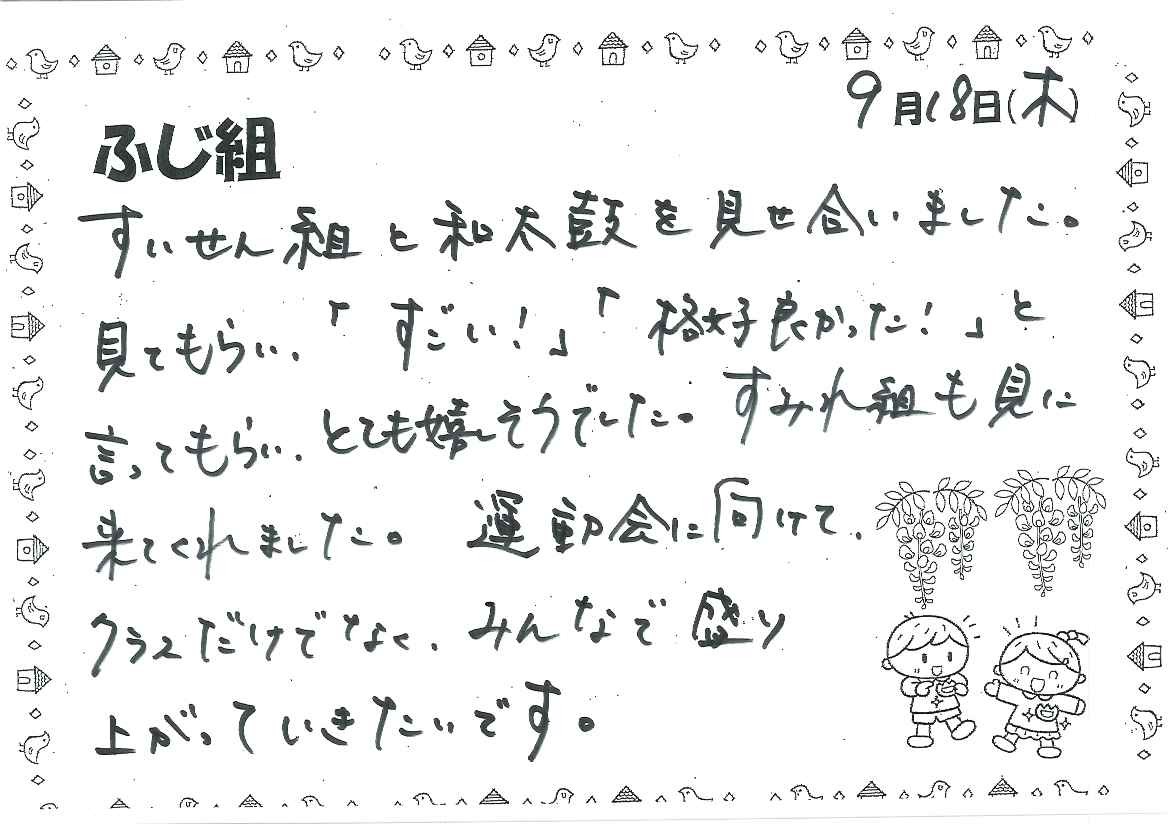 9月18日(木)
ふじ組
すいせん組と和太鼓を見せ合いました。
見てもらい、「すごい!」「格好良かった!」と
言ってもらい、とても嬉しそうでした。すみれ組も見に
来てくれました。運動会に向けて、
クラスだけでなく、みんなで盛り
上がっていきたいです。